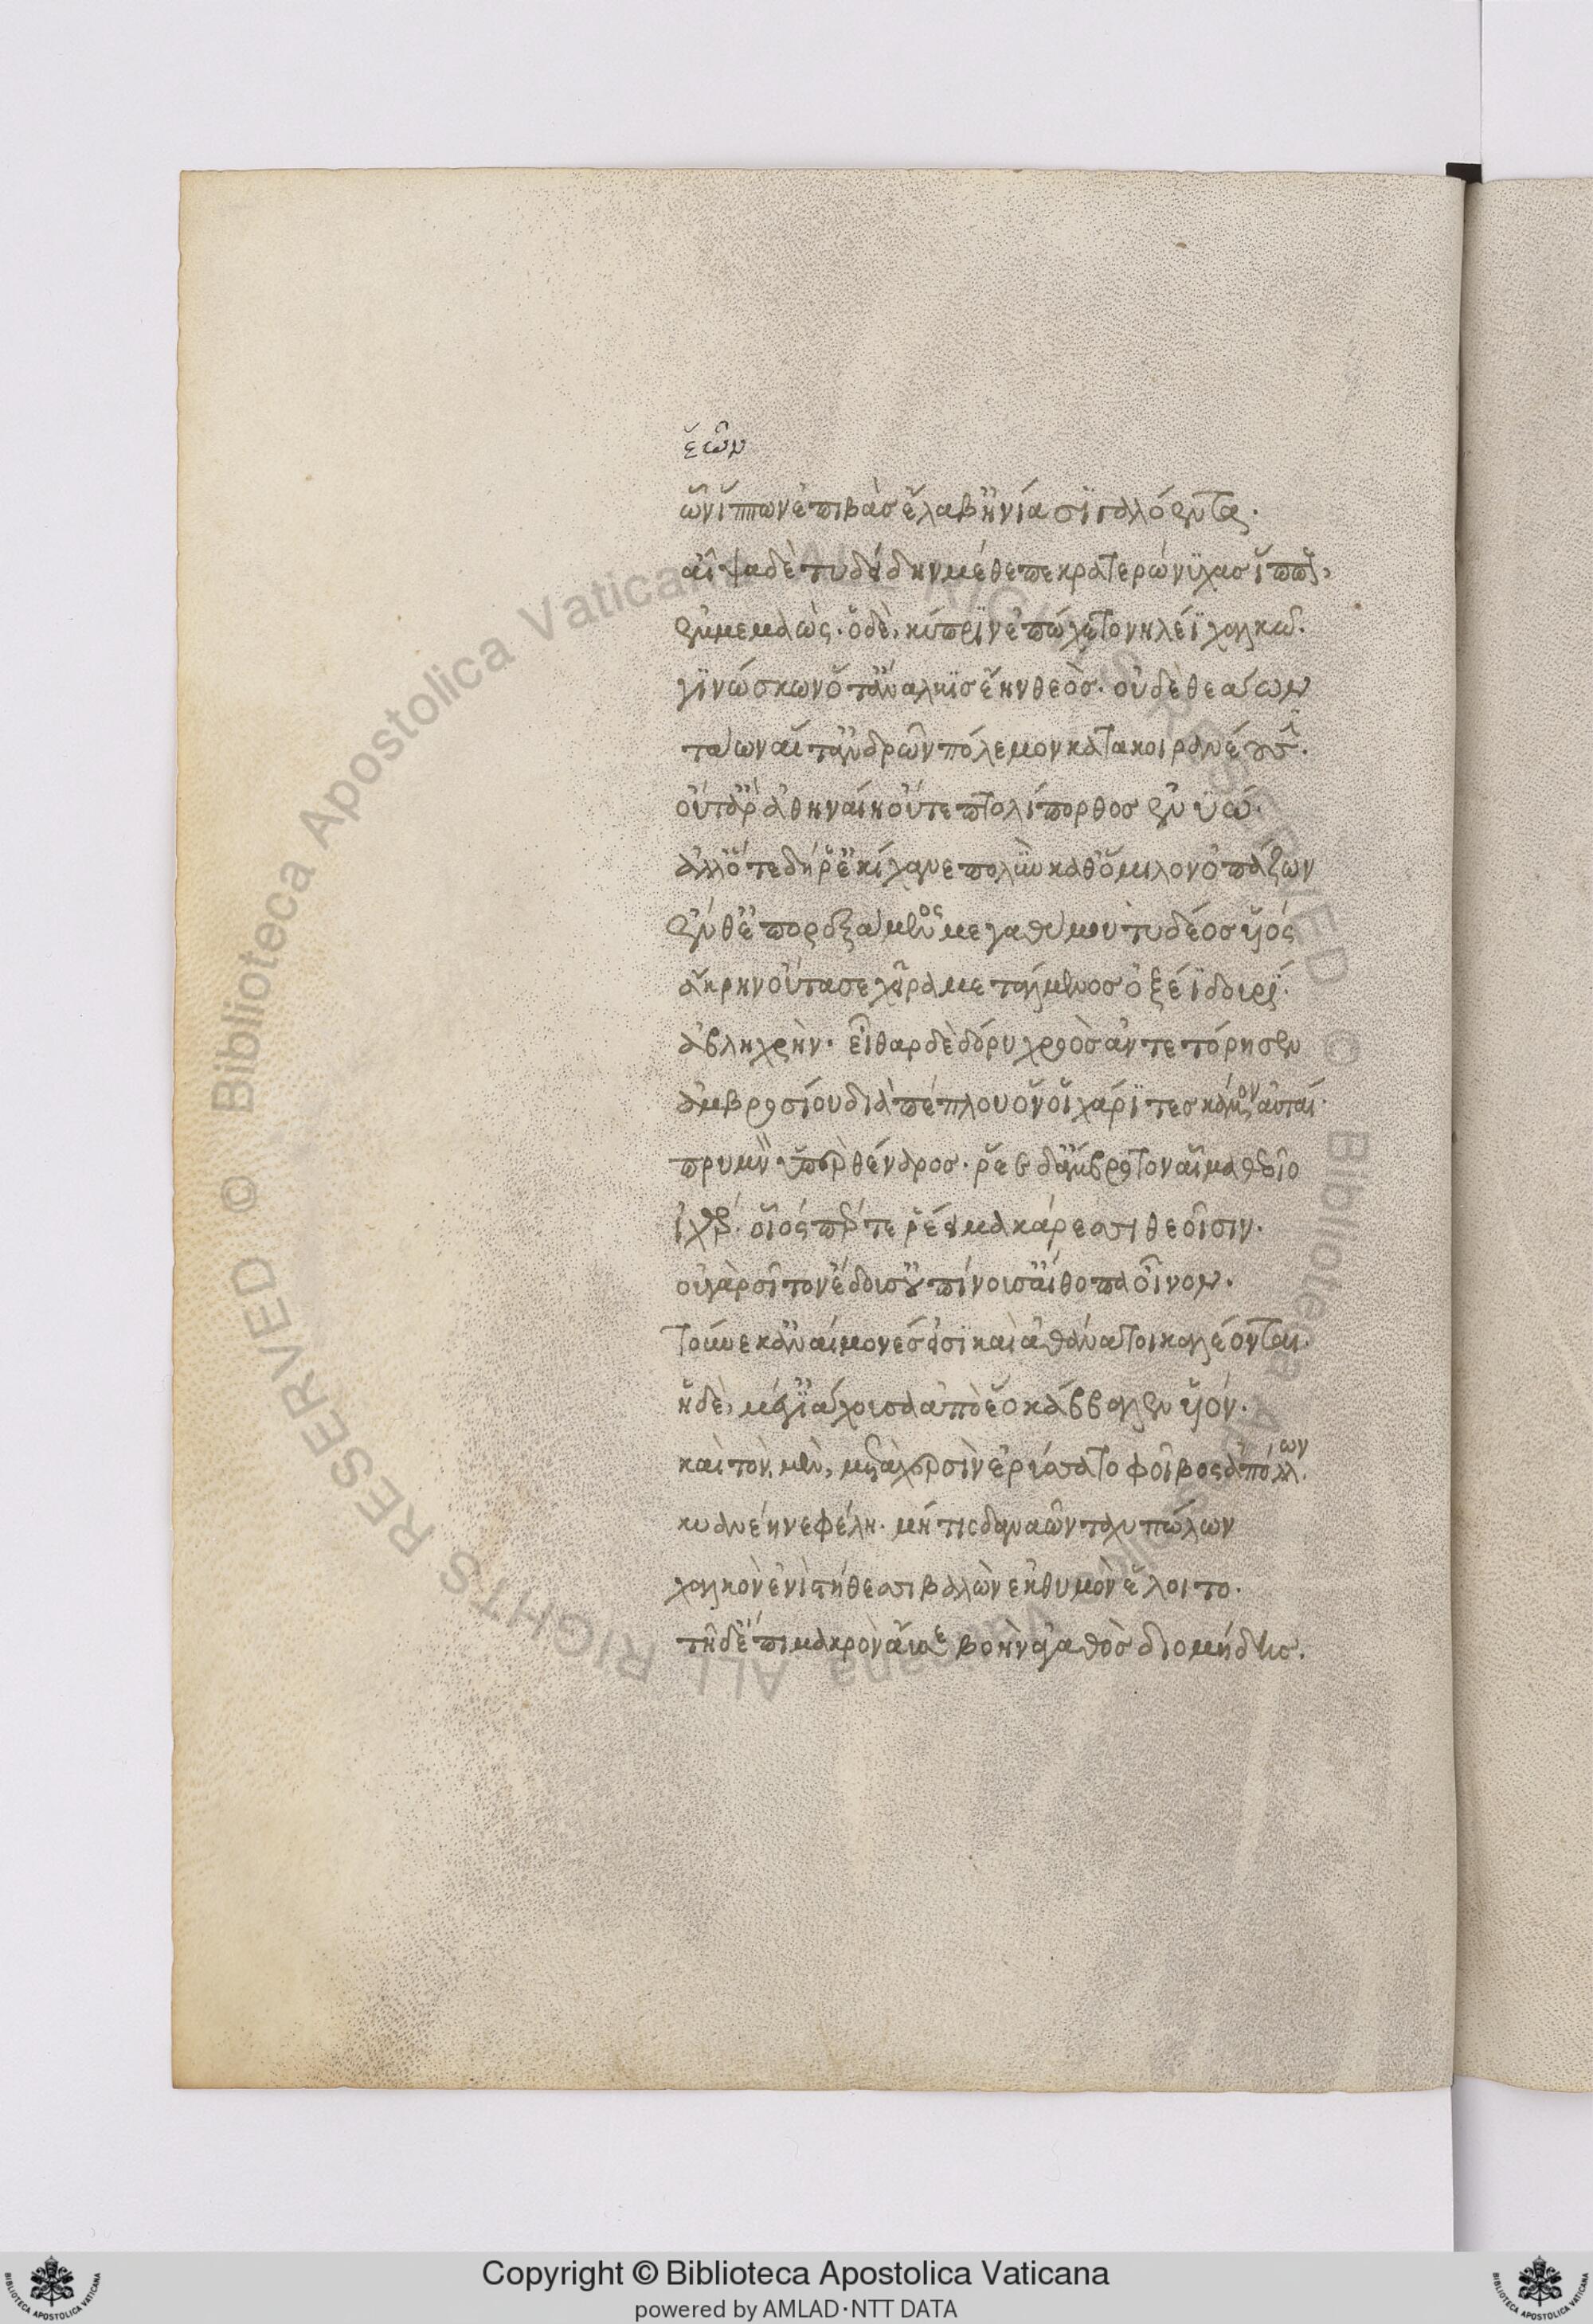 ἑῶν
ὧν ἵππων ἐπιβὰς ἔλαβ' ἡνία σιγαλόεντα.
αἶψα δὲ τυδείδην μέθεπε κρατερώνυχας ἵππους,
ἐμμεμαώς. ὁ δὲ, κύπριν ἐπώχετο νηλέϊ χαλκῶ.
γινώσκων ὅτ' ἄναλκις ἔην θεὸς. οὐδὲ θεάων
τάων αἵτ' ἀνδρῶν πόλεμον κατακοιρανέουσι.
οὔτ' ἄρ ἀθηναίη οὔτε πτολίπορθος ἐνυώ.
ἀλλ' ὅτε δή ῥ' ἐκίχανε πολὺν καθ' ὅμιλον ὀπάζων
ἔνθ' ἐπορεξάμενος μεγαθύμου τυδέος υἱός
ἄκρην οὔτασε χεῖρα μετάλμενος ὀξέϊ δουρί.
ἀβληχρὴν. εἶθαρ δὲ δόρυ χροὸς ἀντετόρησεν
ἀμβροσίου διὰ πέπλου ὅν οἱ χάριτες κάμον αὐταί.
πρυμνὸν ὕπερ θέναρος. ῥέε δ' ἄμβροτον αἷμα θεοῖο
ἰχώρ. οἷός πέρ τε ῥέει μακάρεσσι θεοῖσιν.
οὐ γὰρ σῖτον ἔδουσ' οὐ πίνουσ' αἴθοπα οἶνον.
τοὔνεκ' ἀναίμονές εἰσι καὶ ἀθάνατοι καλέονται.
ἡ δὲ, μέγ' ἰάχουσα ἀπὸ ἕο κάββαλεν υἱόν.
καὶ τὸν, μὲν, μετὰ χερσὶν ἐρύσατο φοῖβος ἀπόλλων.
κυανέη νεφέλη. μή τις δαναῶν ταχυπώλων
χαλκὸν ἐνὶ στήθεσσι βαλὼν ἐκ θυμὸν ἕλοιτο.
τῆ δ' ἐπὶ μακρὸν ἄυσε βοὴν ἀγαθὸς διομήδης.
Copyright © Biblioteca Apostolica Vaticana
powered by AMLAD·NTT DATA